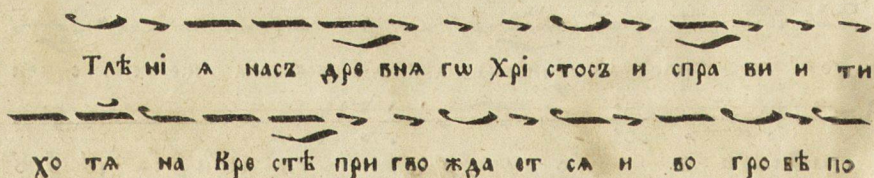 Тлѣ нї ѧ насъ дре внѧ гѡ Хрї стосъ и спра ви и ти
хо тѧ на Кре стѣ при гво жда ет сѧ и во гро бѣ по